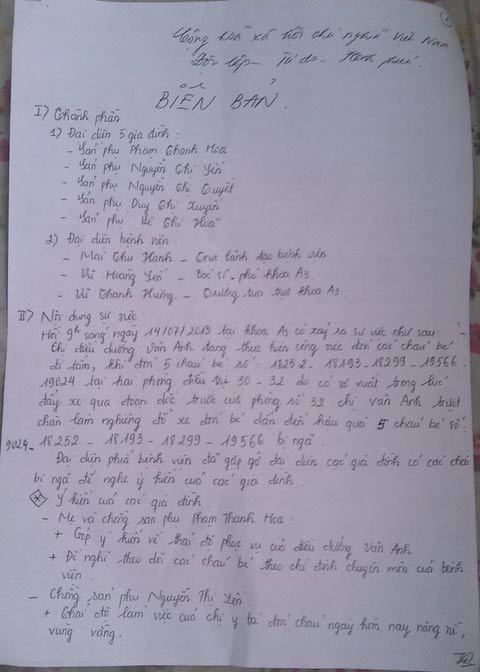 1
Cộng hoà xã hội chủ nghĩa Việt Nam
Độc lập - Tự do - Hạnh phúc.
BIÊN BẢN.
I) Thành phần
1) Đại diện 5 gia đình:
- Sản phụ Phạm Thanh Hoa
- Sản phụ Nguyễn Thị Yến
- Sản phụ Nguyễn Thị Quyết
- Sản phụ Duy Thị Xuyến
- Sản phụ Bế Thị Hoà
2) Đại diện bệnh viện
- Mai Thu Hạnh - Trực lãnh đạo bệnh viện
- Vũ Hoàng Yến - Bác sĩ - phó khoa A3
- Vũ Thanh Hường - Trưởng tua trực khoa A3.
II) Nội dung sự việc
Hồi 9h sáng ngày 14/07/2013 tại khoa A3 có xảy ra sự việc như sau:
Chị điều dưỡng Vân Anh đang thực hiện công việc đón các cháu bé
đi tắm, khi đón 5 cháu bé số: 18252 - 18193 - 18299 - 19566
19024 tại hai phòng điều trị 30 - 32 do có sơ xuất trong lúc
đẩy xe qua đoạn dốc trước cửa phòng số 32 chị Vân Anh trượt
chân làm nghiêng đổ xe đón bé dẫn đến hậu quả 5 cháu bé số:
9024 - 18252 - 18193 - 18299 - 19566 bị ngã.
Đại diện phía bệnh viện đã gặp gỡ đại diện các gia đình có các cháu
bị ngã để nghe ý kiến của các gia đình.
Ý kiến của các gia đình.
- Mẹ và chồng sản phụ Phạm Thanh Hoa:
+ Góp ý kiến về thái độ phục vụ của điều dưỡng Vân Anh
+ Đề nghị theo dõi các cháu bé theo chỉ định chuyên môn của bệnh
viện.
- Chồng sản phụ Nguyễn Thị Yến
+ Thái độ làm việc của chị y tá đón cháu ngày hôm nay nặng nề,
vùng vằng.